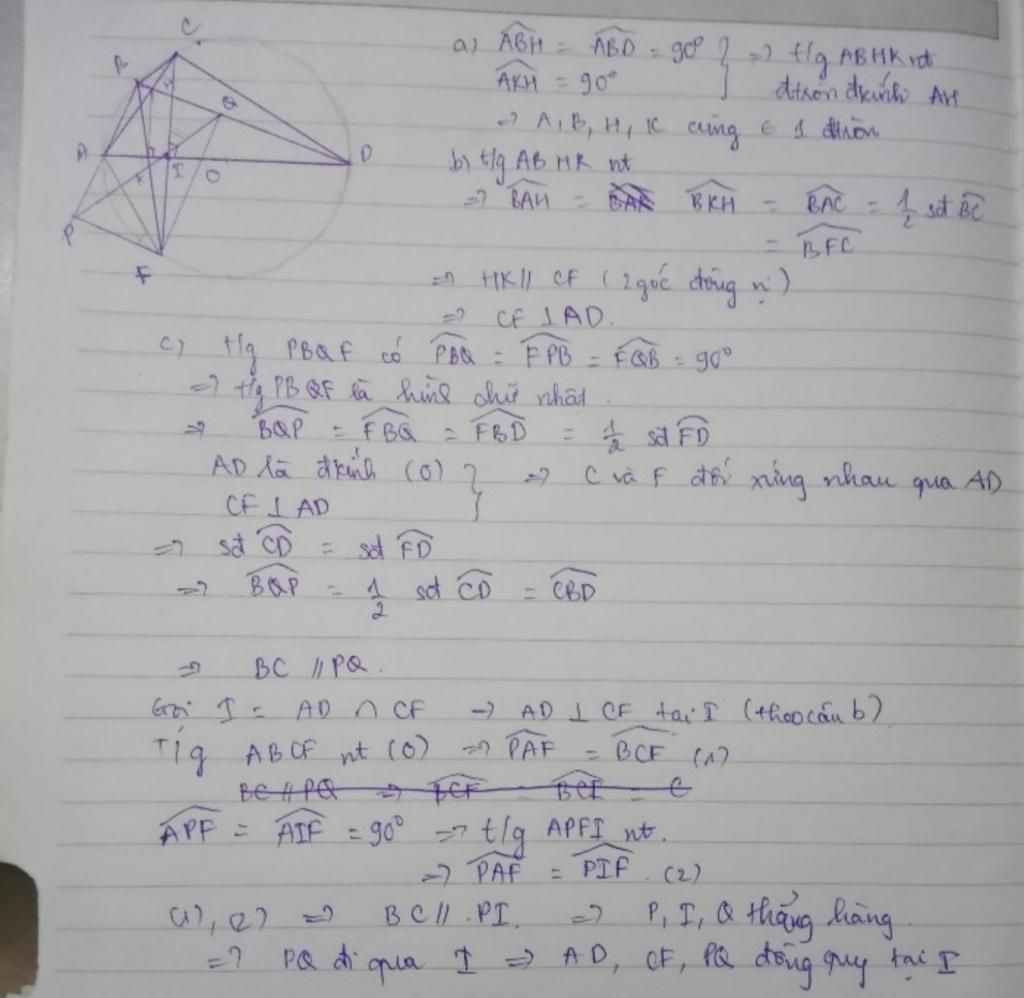 C
B
H
Q
A
K
I
O
D
P
F
a) ABH = ABD = 90° } => t/g ABHK nt
AKH = 90° đtròn đkính AH
=> A, B, H, K cùng ∈ 1 đtròn
b) t/g ABHK nt
=> BAH = BKH = BAC = 1/2 sđ BC
= BFC
=> HK // CF (2 góc đồng vị)
=> CF ⊥ AD.
c) t/g PBQF có PBQ = FPB = FQB = 90°
=> t/g PBQF là hình chữ nhật.
=> BQP = FBQ = FBD = 1/2 sđ FD
AD là đkính (O) } => C và F đối xứng nhau qua AD
CF ⊥ AD
=> sđ CD = sđ FD
=> BQP = 1/2 sđ CD = CBD
=> BC // PQ.
Gọi I = AD ∩ CF -> AD ⊥ CF tại I (theo câu b)
T/g ABCF nt (O) => PAF = BCF (1)
BC // PQ => BCF = BCI = C
APF = AIF = 90° => t/g APFI nt.
=> PAF = PIF. (2)
(1), (2) => BC // PI. => P, I, Q thẳng hàng.
=> PQ đi qua I => AD, CF, PQ đồng quy tại I